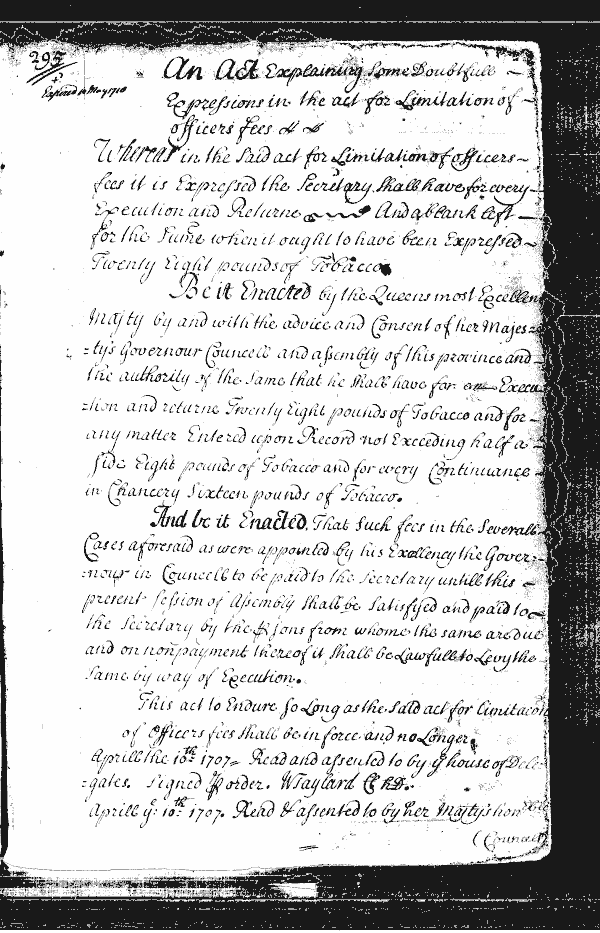 295
Expired in May 1710
An Act Explaining Some Doubtfull
Expressions in the act for Limitation of
officers fees &c
Whereas in the Said act for Limitation of officers
fees it is Expressed the Secretary Shall have for every
Execution and Returne And a blank left
for the Sume when it ought to have been Expressed
Twenty Eight pounds of Tobacco
Be it Enacted by the Queens most Excellen
Majty by and with the advice and Consent of her Majes=
=tys Governour Councell and assembly of this province and
the authority of the Same that he Shall have for Execu
=tion and returne Twenty Eight pounds of Tobacco and for
any matter Entered upon Record not Exceeding half a
side Eight pounds of Tobacco and for every Continuance
in Chancery Sixteen pounds of Tobacco.
And be it Enacted, That Such fees in the Severall
Cases aforesaid as were appointed by his Excellency the Gover=
=nour in Councell to be paid to the Secretary untill this
present Session of Assembly Shall be Satisfyed and paid to
the Secretary by the psons from whome the same are due
and on nonpayment thereof it Shall be Lawfull to Levy the
Same by way of Execution.
This act to Endure So Long as the Said act for limitacon
of Officers fees Shall be in force and no Longer,
Aprill the 10th 1707 Read and assented to by ye house of Dele
=gates. Signed p order. WTaylard Cl hD.
Aprill ye 10th 1707. Read & assented to by her Majtys hon
(Councell